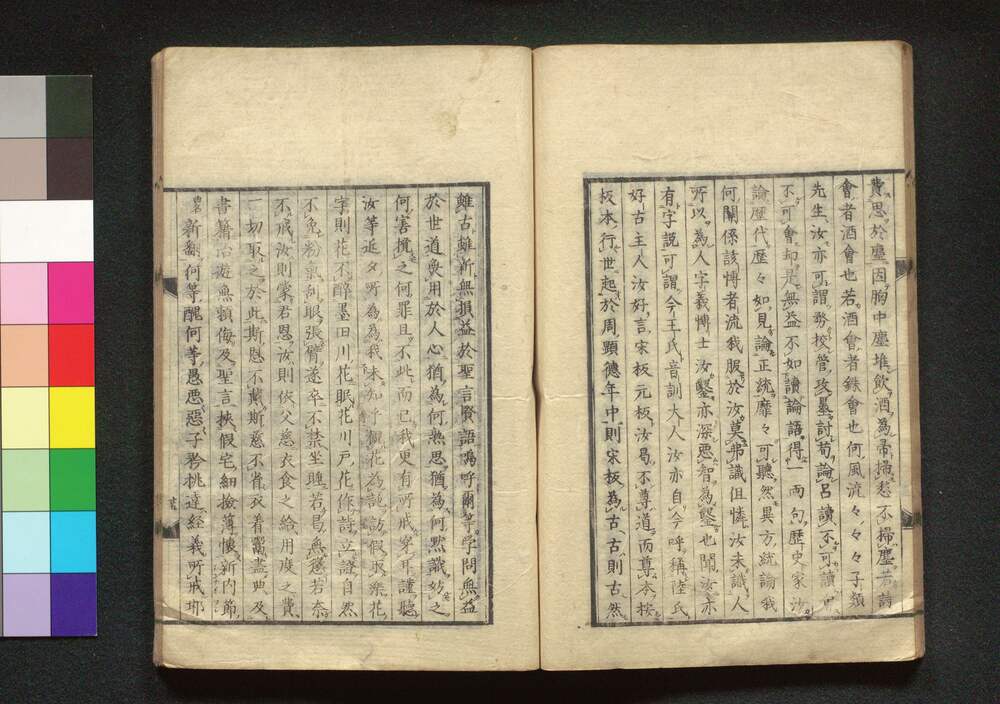 費思於塵因胸中塵堆飲酒為帚掃愁不掃塵若詩
會者酒會也若酒會者銖會也何風流々々々子類
先生汝亦可謂勞校管攻墨討荀論呂讀不可讀
不可會却是無益不如讀論語得一兩句歷史家汝
論歷代歷々如見論正統靡々可聽然異方統論我
何關係該博者流我服於汝莫弗識但憐汝未識人
所以為人字義博士汝鑿亦深惡智為鑿也聞汝亦
有字說可謂今王氏音訓大人汝亦自今呼稱陸氏
好古主人汝好言宋板元板汝曷不尊道而尊今按
板本行世起於周顯德年中則宋板為古古則古然
雖古雖新無損益於聖言賢語嗚呼爾等學問無益
於世道奠用於人心猶為何熱思猶為何默識妨之
何害攪之何罪且不此而已我更有所戒穿耳謹聽
汝等近夕所為為我未知乎觀花為訪假取樂花
字則花不醉墨田川花眠花川戶花作詩立證自然
不免粉氣刮眼張臂遂卒不禁坐睡若曷無慈若奈
不戒汝則蒙君恩汝則依父慈衣食之給用度之費
一切取之於此斯恩不戴斯慈不省衣着鬻盡典及
書籍冶遊無損侮及聖言挾假宅細撿薄懷新内節
新翻何等醜何等愚惡惡子矜挑達經義所戒耶